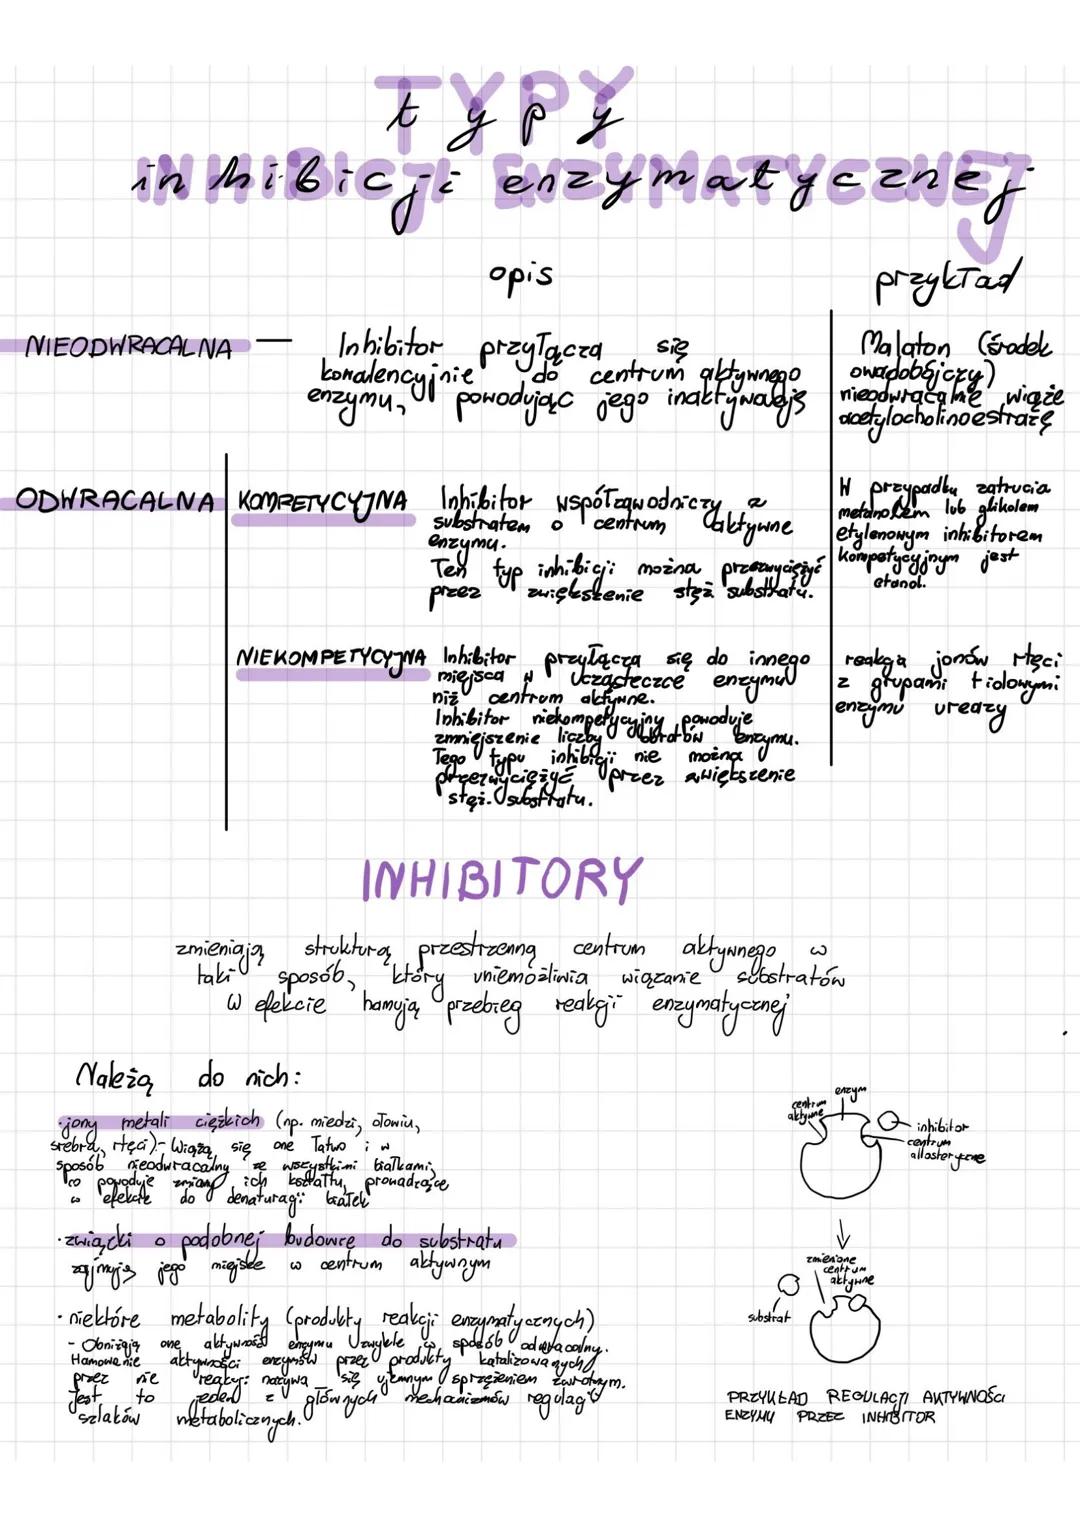 TYPY
typy
INHIBICJI ENZYMATYCZNEJ
inhibicji enzymatycznej
opis
przykład
NIEODWRACALNA —
Inhibitor przyłącza się
kowalencyjnie do centrum aktywnego
enzymu, powodując jego inaktywację
Malation (środek
owadobójczy)
nieodwracalnie wiąże
acetylocholinoestrazę
ODWRACALNA
KOMPETYCYJNA
Inhibitor współzawodniczy z
substratem o centrum aktywne
enzymu.
Ten typ inhibicji można przezwyciężyć
przez zwiększenie stęż. substratu.
W przypadku zatrucia
metanolem lub glikolem
etylenowym inhibitorem
kompetycyjnym jest
etanol.
NIEKOMPETYCYJNA
Inhibitor przyłącza się do innego
miejsca w cząsteczce enzymu
niż centrum aktywne.
Inhibitor niekompetycyjny powoduje
zmniejszenie liczby obrotów enzymu.
Tego typu inhibicji nie można
przezwyciężyć przez zwiększenie
stęż. substratu.
reakcja jonów rtęci
z grupami tiolowymi
enzymu ureazy
INHIBITORY
zmieniają strukturą przestrzenną centrum aktywnego w
taki sposób, który uniemożliwia wiązanie substratów
W efekcie hamują przebieg reakcji enzymatycznej
Należą do nich:
·jony metali ciężkich (np. miedzi, ołowiu,
srebra, rtęci)- Wiążą się one łatwo i w
sposób nieodwracalny ze wszystkimi białkami,
co powoduje zmiany ich kształtu, prowadzące
w efekcie do denaturacji białek
·związki o podobnej budowie do substratu
zajmują jego miejsce w centrum aktywnym
· niektóre metabolity (produkty reakcji enzymatycznych)
- Obniżają one aktywność enzymu zwykle w sposób odwracalny.
Hamowanie aktywności enzymów przez produkty katalizowanych
przez nie reakcji nazywa się ujemnym sprzężeniem zwrotnym.
Jest to jeden z głównych mechanizmów regulacji
szlaków metabolicznych.
enzym
centrum
aktywne
inhibitor
centrum
allosteryczne
zmienione
centrum
aktywne
substrat
PRZYKŁAD REGULACJI AKTYWNOŚCI
ENZYMU PRZEZ INHIBITOR